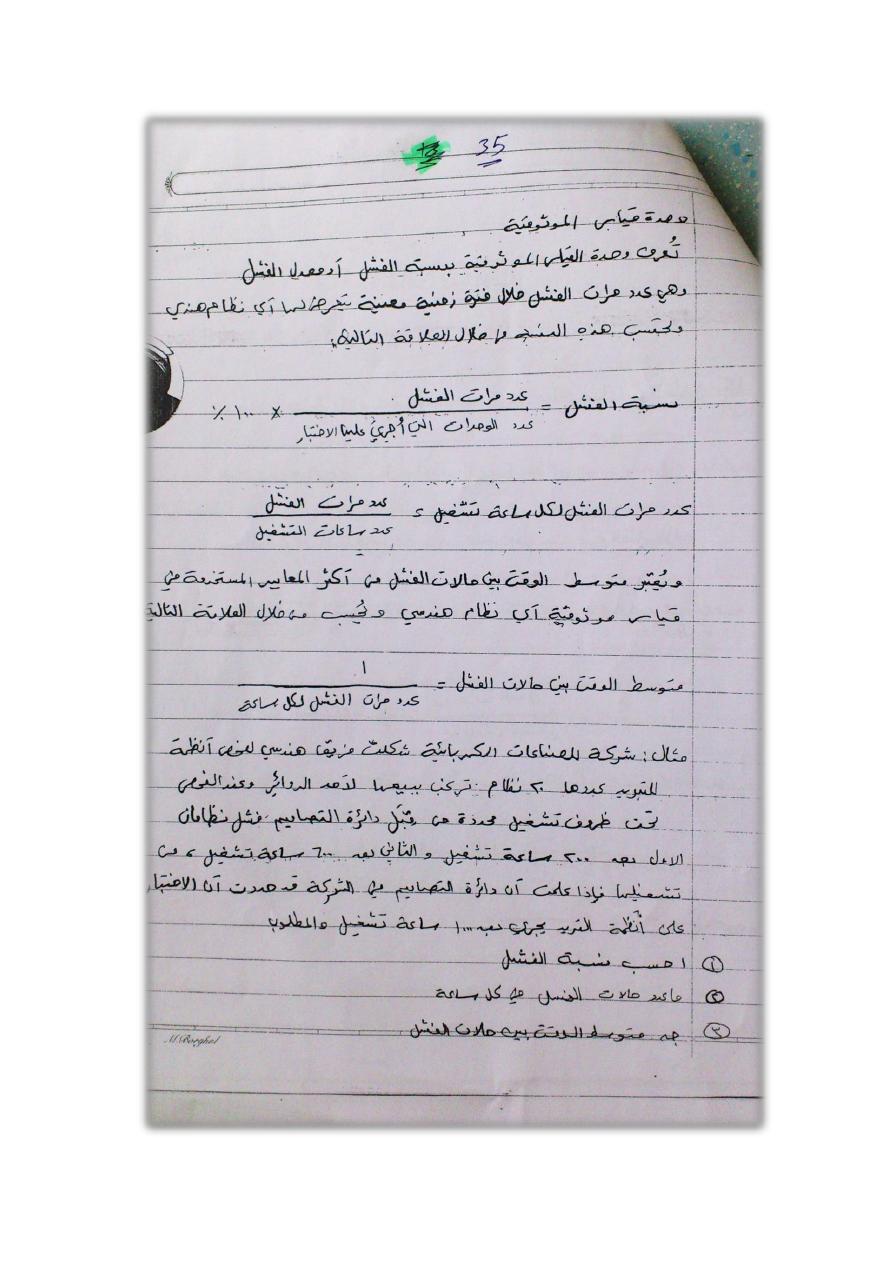 35
وحدة قياس الموثوقية
تُعرف وحدة القياس الموثوقية بنسبة الفشل أو معدل الفشل
وهي عدد مرات الفشل خلال فترة زمنية معينة يتعرض لها أي نظام هندسي
وتحتسب هذه النسبة من خلال العلاقة التالية:
نسبة الفشل = عدد مرات الفشل
عدد الوحدات التي أُجري عليها الاختبار × ١٠٠ ٪
عدد مرات الفشل لكل ساعة تشغيل = عدد مرات الفشل
عدد ساعات التشغيل
ويُعتبر متوسط الوقت بين حالات الفشل من أكثر المعايير المستخدمة في
قياس موثوقية أي نظام هندسي ويُحسب من خلال العلاقة التالية
متوسط الوقت بين حالات الفشل = ١
عدد مرات الفشل لكل ساعة
مثال: شركة للصناعات الكهربائية شكلت فريق هندسي لفحص أنظمة
للتبريد عددها ٢٠ نظام ترغب ببيعها لأحد الدوائر وعند الفحص
تحت ظروف تشغيل محددة من قِبَل دائرة التصاميم فشل نظامان
الاول بعد ٢٠٠ ساعة تشغيل والثاني بعد ٦٠٠ ساعة تشغيل، من
تشغيلها فإذا علمت أن دائرة التصاميم في الشركة قد حددت أن الاختبار
على أنظمة التبريد يجري بعد ١٠٠٠ ساعة تشغيل والمطلوب
① احسب نسبة الفشل
② ما عدد حالات الفشل في كل ساعة
③ جد متوسط الوقت بين حالات الفشل
M.Borghol